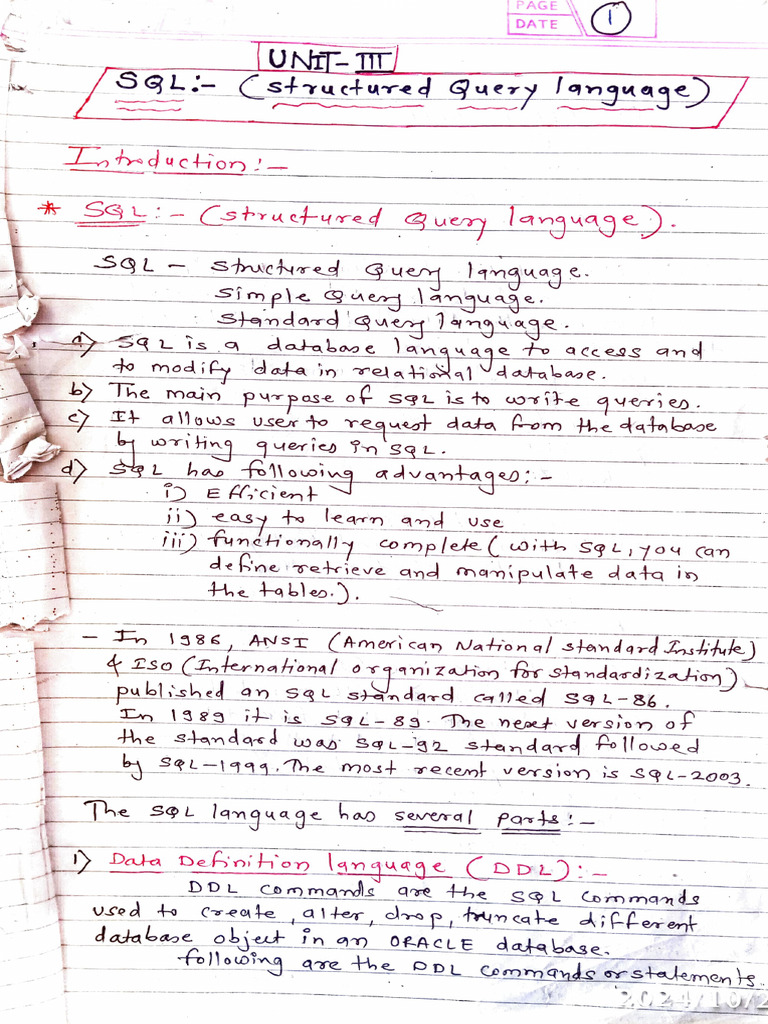 PAGE
DATE
1
UNIT-III
SQL:- (structured Query language)
Introduction:-
* SQL:- (structured Query language).
SQL - Structured Query language.
Simple Query language.
Standard Query language.
a) SQL is a database language to access and
to modify data in relational database.
b) The main purpose of SQL is to write queries.
c) It allows user to request data from the database
by writing queries in SQL.
d) SQL has following advantages:-
i) Efficient
ii) easy to learn and use
iii) functionally complete (with SQL, you can
define retrieve and manipulate data in
the tables.).
- In 1986, ANSI (American National standard Institute)
& ISO (International organization for standardization)
published an SQL standard called SQL-86.
In 1989 it is SQL-89. The next version of
the standard was SQL-92 standard followed
by SQL-1999. The most recent version is SQL-2003.
The SQL language has several parts:-
1) Data Definition language (DDL):-
DDL commands are the SQL commands
used to create, alter, drop, truncate different
database object in an ORACLE database.
following are the DDL commands or statements.
2024/10/2